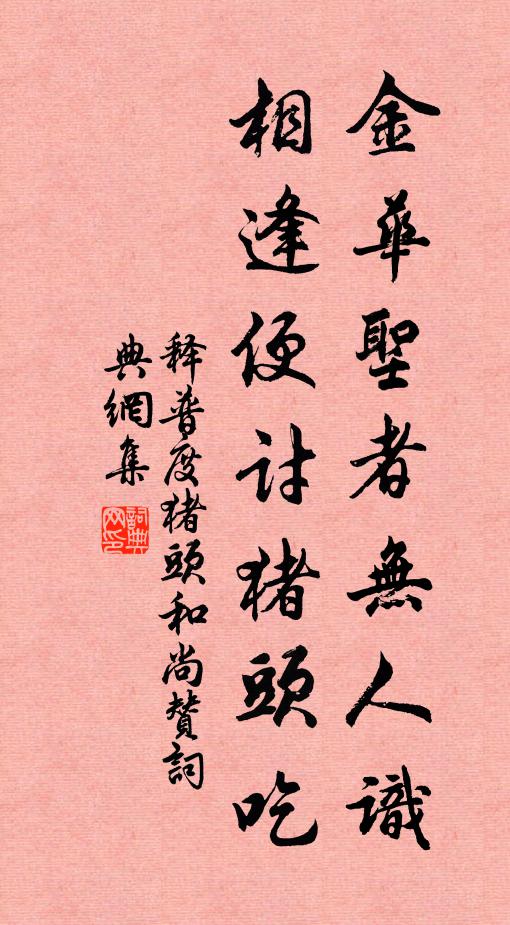 金華聖者無人識
相逢便討猪頭吃
释普度猪頭和尚贊詞
典網集
詞典网印